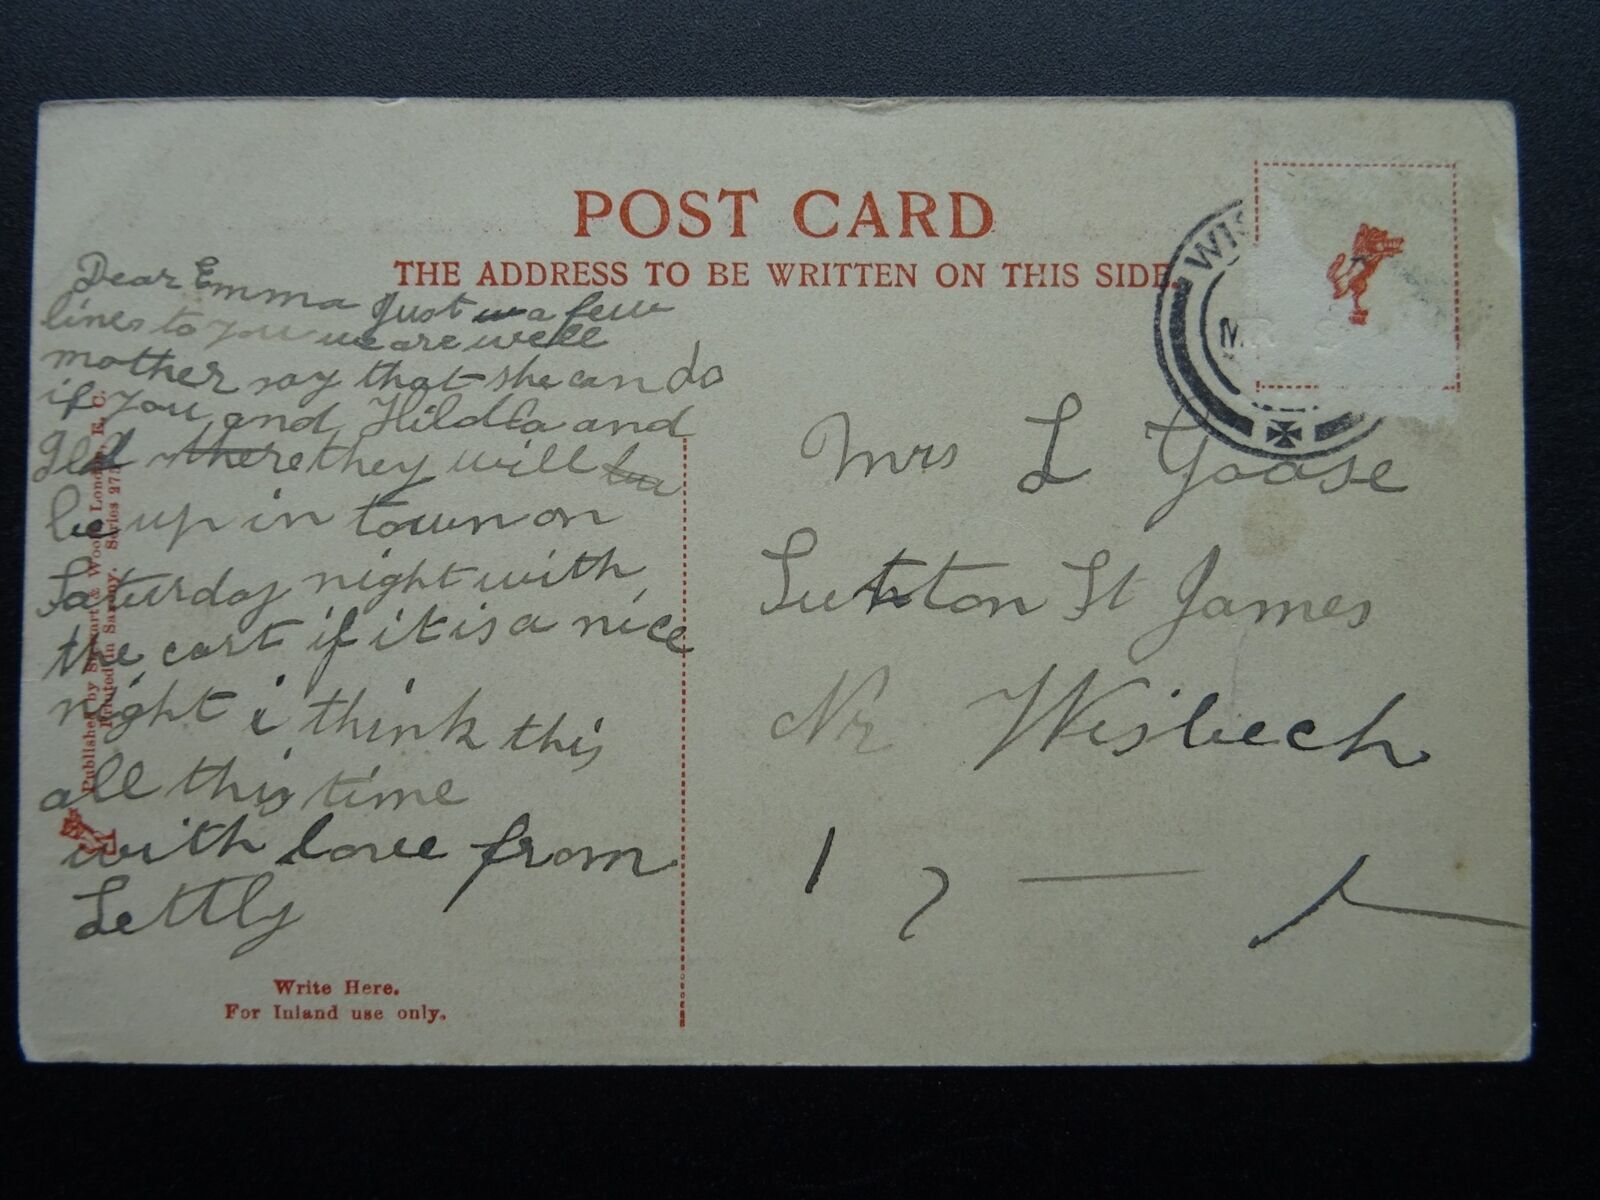 POST CARD
THE ADDRESS TO BE WRITTEN ON THIS SIDE.
WIS
MR
Dear Emma Just a few
lines to you we are well
mother say that she can do
if you and Hildla and
they will
be up in town on
Saturday night with
the cart if it is a nice
night i think this
all this time
with love from
Lettly
Mrs L Goose
Sutton St James
Nr Wisbech
Published by Stewart & Woolf, London, E. C.
Printed in Saxony. Series
Write Here.
For Inland use only.